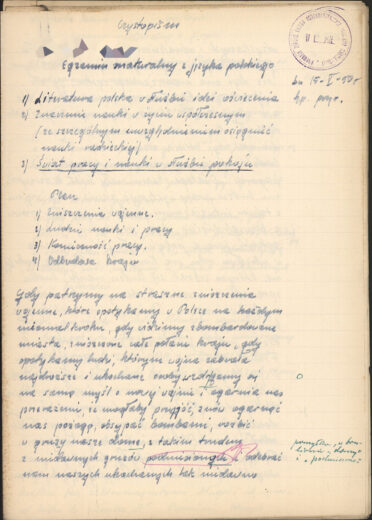 Czystopism
Egzamin maturalny z języka polskiego
dn 15-V-50r
1) Literatura polska w służbie idei odrodzenia
2) Znaczenie nauki w życiu współczesnym
(ze szczególnym uwzględnieniem osiągnięć
nauki radzieckiej)
3) Świat pracy i nauki w służbie pokoju
Plan
1) Zniszczenia wojenne.
2) Ludzie nauki i pracy
3) Konieczność pracy.
4) Odbudowa kraju
Gdy patrzymy na straszne zniszczenia
wojenne, które spotykamy w Polsce na każdym
niemal kroku, gdy widzimy zbombardowane
miasta, zniszczone całe połacie kraju, gdy
spotykamy ludzi, którym wojna zabrała
najdroższe i ukochane osoby wzdrygamy się
na samą myśl o nowej wojnie i ogarnia nas
przerażenie, że mogłaby przyjść, znów ogarnąć
nas pożogą, obsypać bombami, rozbić
w gruzy nasze domy, z takim trudem
z niedawnych gruzów podniesionych i zabrać
nam naszych ukochanych tak niedawno